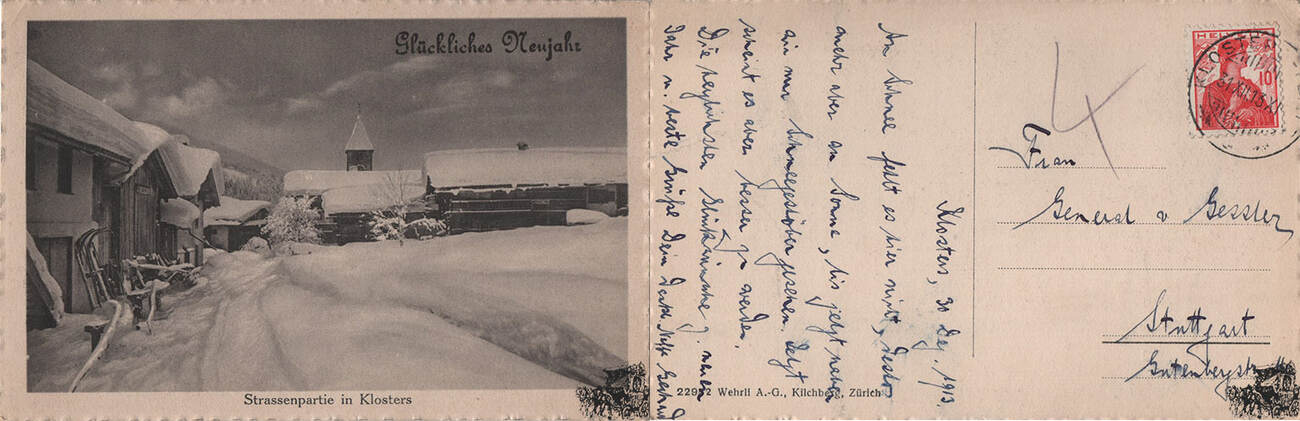 Glückliches Neujahr
Strassenpartie in Klosters
Klosters, 30 Dez. 1913.
An Schnee fehlt es hier nicht, desto
mehr aber an Sonne, bis jetzt haben
wir nur Schneegestöber gesehen. Jetzt
scheint es aber besser zu werden.
Die herzlichsten Glückwünsche z. neuen
Jahr u. beste Grüße Dein
22912 Wehrli A.-G., Kilchberg, Zürich
HELVETIA
10
KLOSTERS
31.XII.13
4
Frau
General v Gessler
Stuttgart
Gutenbergstr